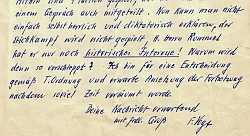 einem Gespräch auch mitgeteilt. Nun kann man nicht
einfach selbstherrlich und diktatorisch erklären, der
Stichkampf wird nicht gespielt, H. Herrn Rommel
hat er nur noch historisches Interesse! Warum wird
denn so verschleppt? Ich bin für eine Entscheidung
gemäß T.Ordnung und erwarte Ansetzung der Fortsetzung
nachdem soviel Zeit versäumt wurde.
Deine Nachricht erwartend
mit frdl. Gruß